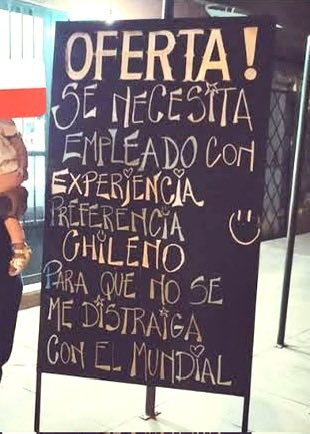 OFERTA!
SE NECESITA
EMPLEADO CON
EXPERIENCIA
PREFERENCIA
CHILENO
PARA QUE NO SE
ME DISTRAIGA
CON EL MUNDIAL